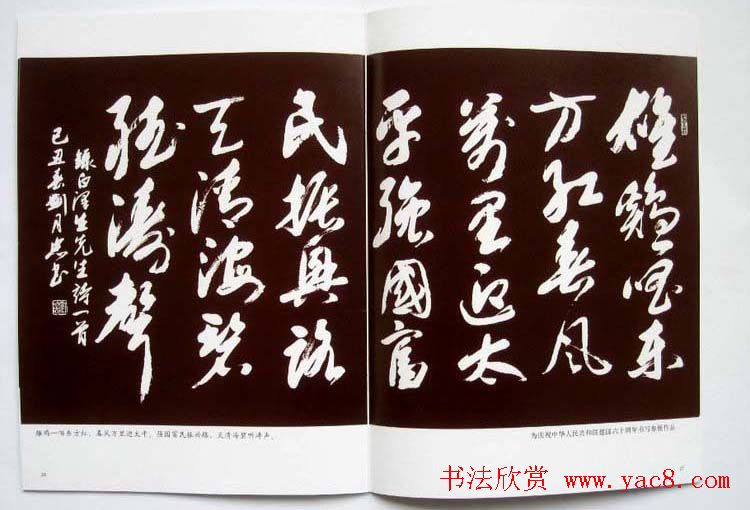 雄鷄一唱东
方红春风
萬里迎太
平强國富
民振興路
天清海碧
聽濤聲
録白泽生先生诗一首
己丑春刘月忠书
雄鸡一唱东方红，春风万里迎太平。强国富民振兴路，天清海碧听涛声。
为庆祝中华人民共和国建国六十周年书写参展作品
书法欣赏 www.yac8.com